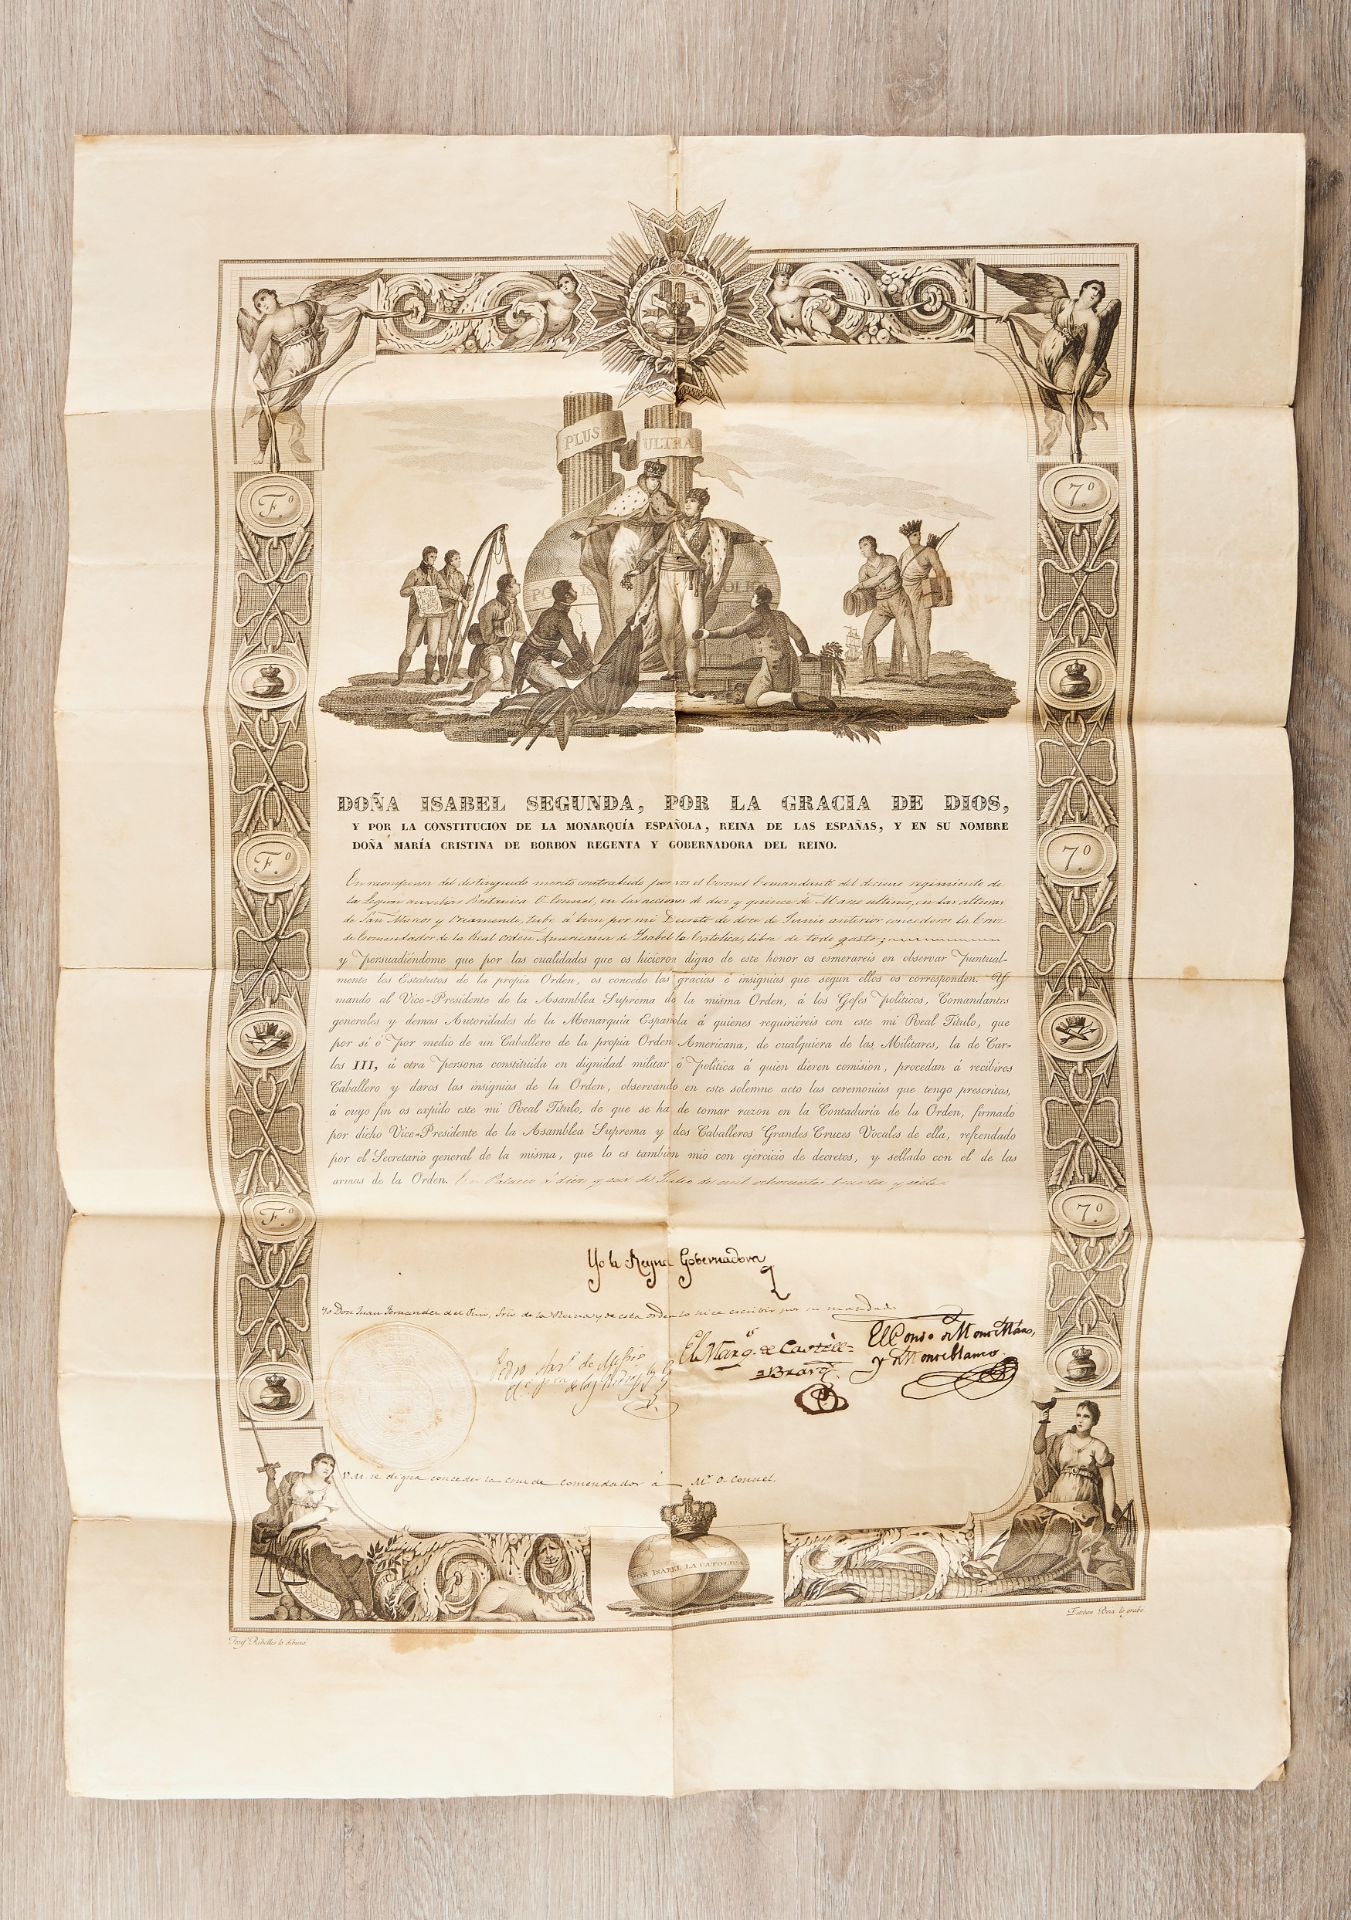 PLUS
ULTRA
F.º
7.º
F.º
7.º
F.º
7.º
DOÑA ISABEL SEGUNDA, POR LA GRACIA DE DIOS,
Y POR LA CONSTITUCION DE LA MONARQUÍA ESPAÑOLA, REINA DE LAS ESPAÑAS, Y EN SU NOMBRE
DOÑA MARÍA CRISTINA DE BORBON REGENTA Y GOBERNADORA DEL REINO.
En recompensa del distinguido merito contrahido por vos el Coronel Comandante del decimo regimiento de
la Legion auxiliar Britanica O Connel, en las acciones de diez y quince de Marzo ultimo, en las alturas
de San Marcos y Oriamendi, tube á bien por mi Decreto de doce de Junio anterior concederos la Cruz
de Comendador de la Real orden Americana de Isabel la Catolica, libre de todo gasto;
y persuadiéndome que por las cualidades que os hicieron digno de este honor os esmerareis en observar puntual-
mente los Estatutos de la propia Orden, os concedo las gracias é insignias que segun ellos os corresponden. Y
mando al Vice-Presidente de la Asamblea Suprema de la misma Orden, á los Gefes Políticos, Comandantes
generales y demas Autoridades de la Monarquía Española á quienes requiriéreis con este mi Real Título, que
por sí ó por medio de un Caballero de la propia Orden Americana, de cualquiera de las Militares, la de Car-
los III, ú otra persona constituida en dignidad militar ó política á quien dieren comision, procedan á recibiros
Caballero y daros las insignias de la Orden, observando en este solemne acto las ceremonias que tengo prescritas,
á cuyo fin os expido este mi Real Título, de que se ha de tomar razon en la Contaduría de la Orden, firmado
por dicho Vice-Presidente de la Asamblea Suprema y dos Caballeros Grandes Cruces Vocales de ella, refrendado
por el Secretario general de la misma, que lo es tambien mio con ejercicio de decretos, y sellado con el de las
armas de la Orden. En Palacio á diez y seis de Julio de mil ochocientos treinta y siete.
Yo la Reyna Gobernadora
Yo Don Juan Fernandez del Pino, Srio de la Reina y de esta orden lo hice escribir por su mandado
El Marq.s de Castell-
Bravo
El Conde de
y de Monteblanco.
V.M. se digna conceder la cruz de comendador á Mr. O Connel.
POR ISABEL LA CATOLICA
Josef Ribelles lo dibuxó
Esteban Boix lo grabó